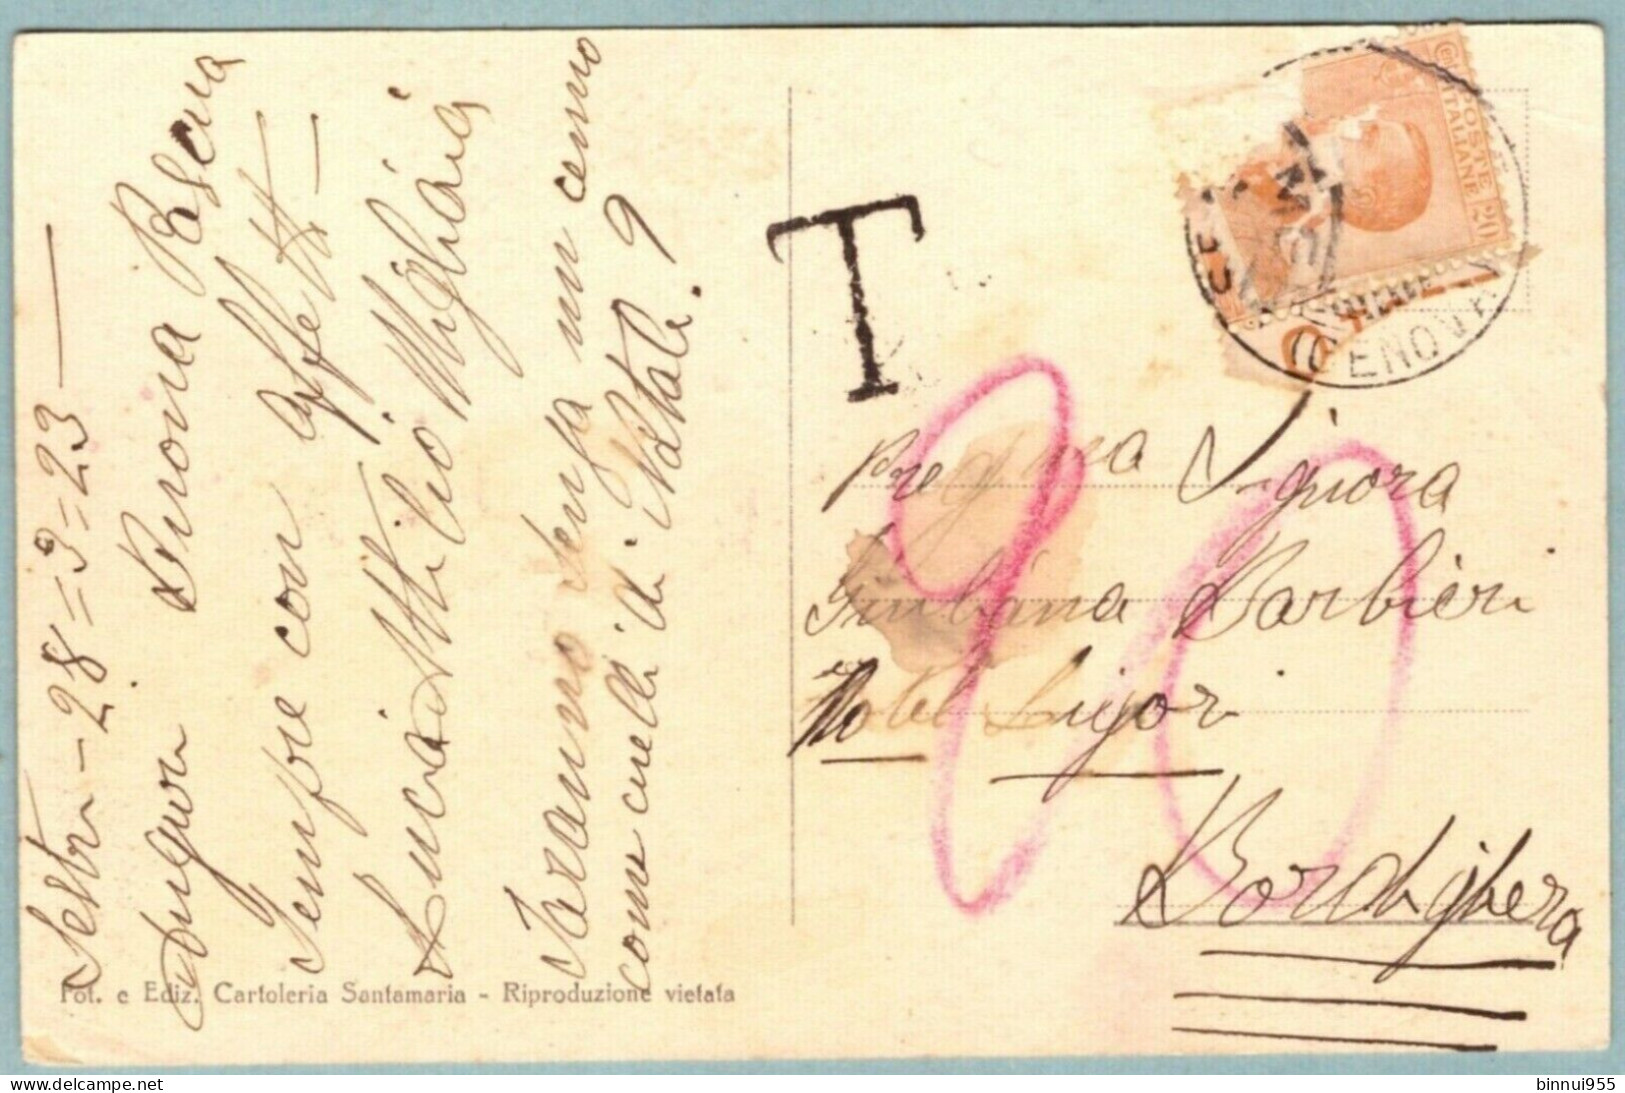 Sestri - 28 = 3 = 23
Auguri Buona Pascua
Sempre con affetto
Lucia Attilio Migliari
Saranno senza un cenno
come quelli di Natale. ?
Fot. e Ediz. Cartoleria Santamaria - Riproduzione vietata
T
20
POSTE ITALIANE
20
(GENOVA)
Signora
Giuliana Barbieri
Hotel Ligori
Bordighera
binnui955